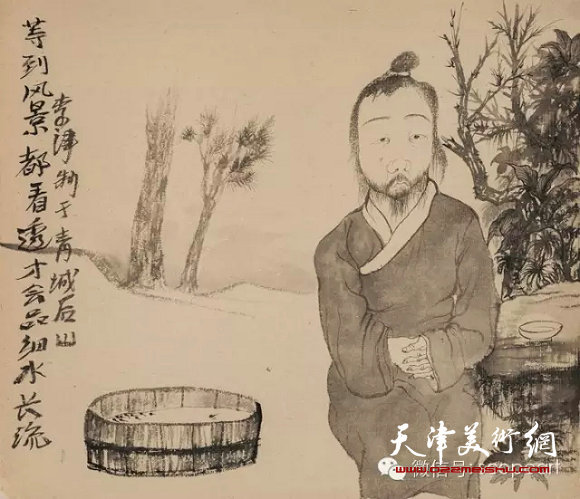 等到风景都看透才会品细水长流
李津制于青城后山
天津美術網
微信号
www.022meishu.com